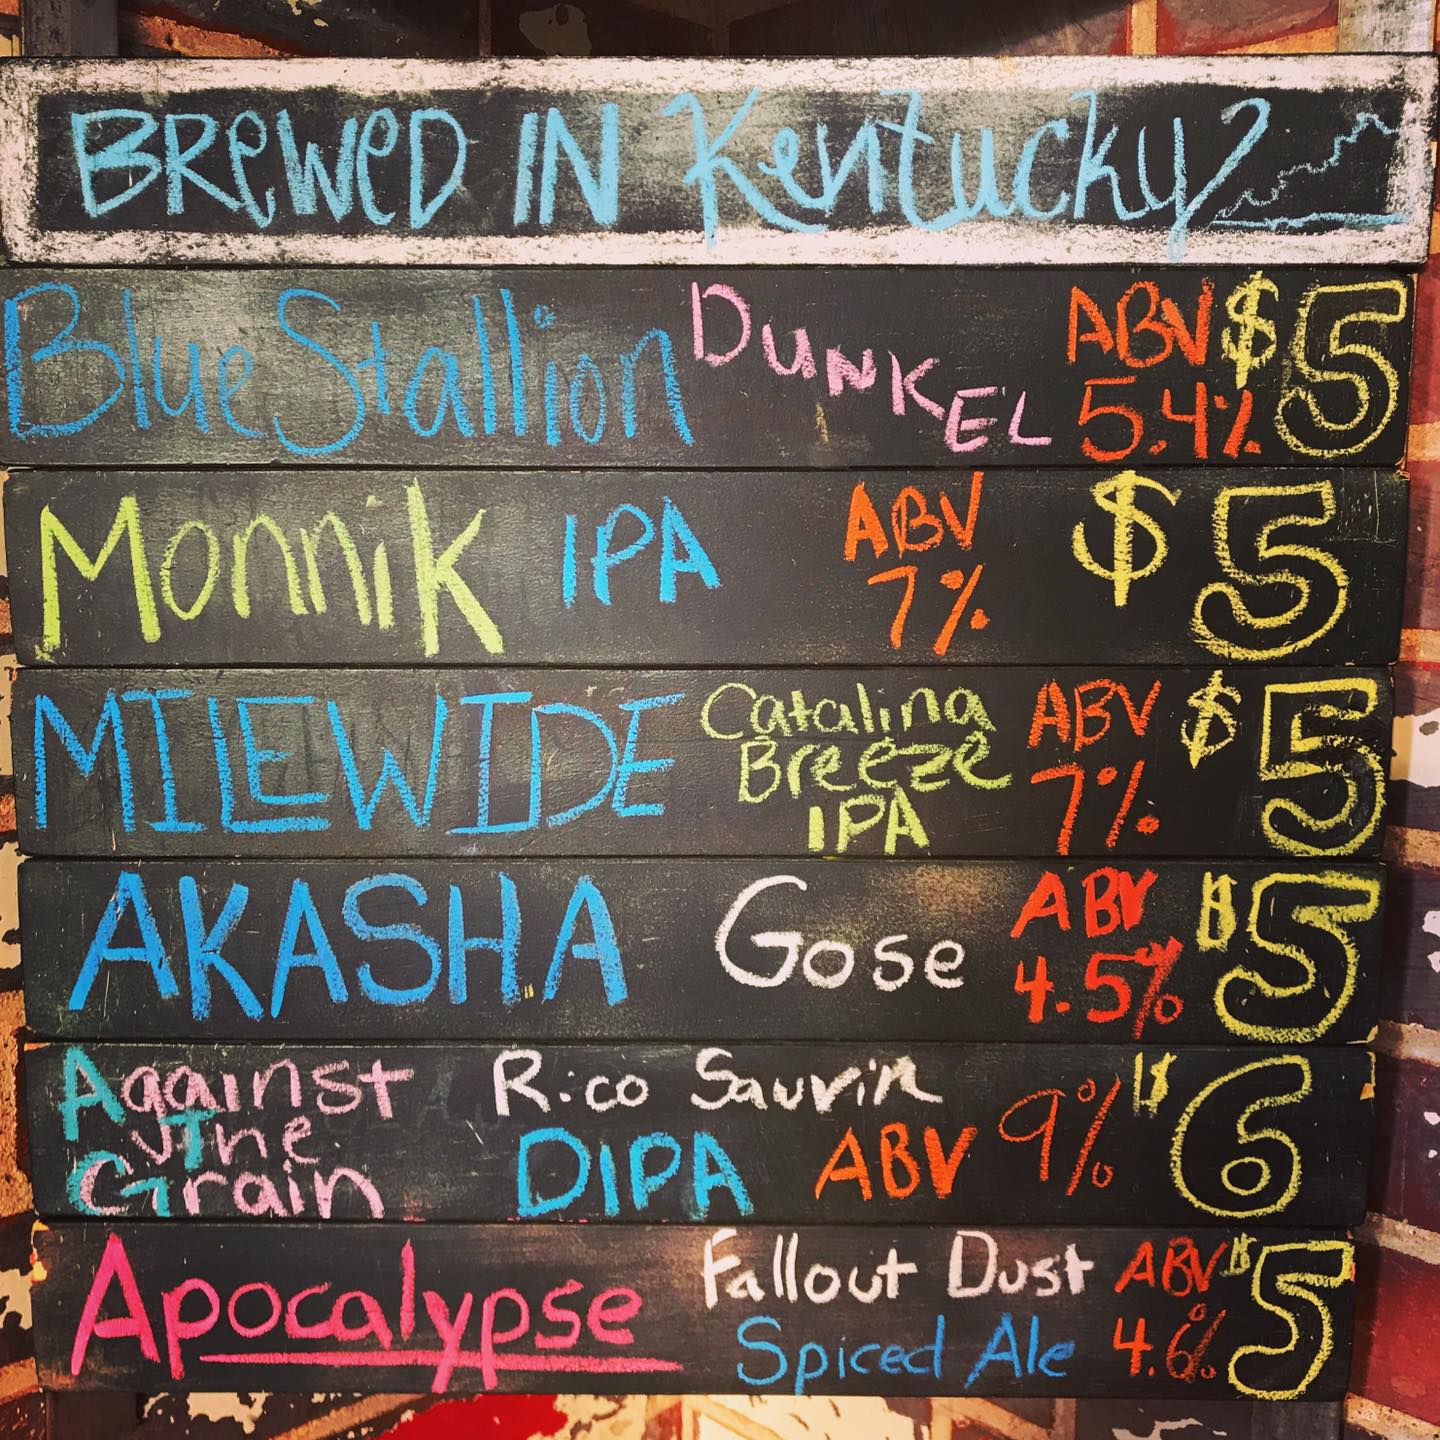 BReWeD IN Kentucky
Blue Stallion DUNKEL ABV 5.4% $5
Monnik IPA ABV 7% $5
MILEWIDE Catalina Breeze IPA ABV 7% $5
AKASHA Gose ABV 4.5% $5
Against The Grain Rico Sauvin DIPA ABV 9% $6
Apocalypse Fallout Dust Spiced Ale ABV 4.6% $5